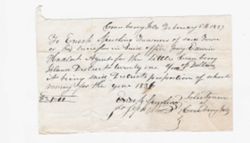 Cranberry Isles February 5th 1837
To Enoch Spurling Treasurer of said Town
or his successor in said office pay Edwin
Hadlock Agent for the Little Cranberry
Island District twenty one
it being said Districts proportion of school
money for the year 1836
Enoch Spurling Selectmen
of
Cranberry Isles